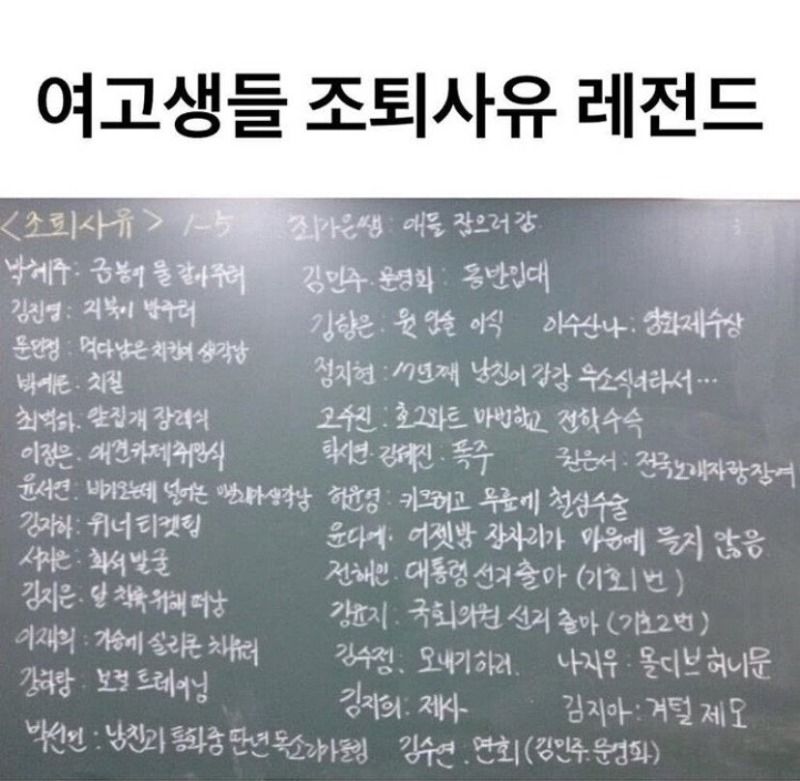 여고생들 조퇴사유 레전드
<조퇴사유> 1-5
최가은쌤 : 애들 잡으러 감
박혜주 : 금붕어 물 갈아주러
김진영 : 거북이 밥주러
문민정 : 먹다남은 치킨이 생각남
박예른 : 치질
최벽화 : 앞집개 장례식
이정은 : 애견카페 취임식
윤서연 : 비가오는데 널어논 빨래가 생각남
김자하 : 위너 티켓팅
서지은 : 화석 발굴
김지은 : 달 착륙 위해 떠남
이재희 : 가슴에 실리콘 채우러
강하랑 : 보컬 트레이닝
박선민 : 남친과 통화중 딴년 목소리가 들림
김민주·문영화 : 동반입대
김향은 : 윗 입술 이식
이수산나 : 영화제수상
정지현 : 17년째 남친이 감감 무소식이라서…
고수진 : 호그와트 마법학교 전학수속
탁시연·김혜진 : 폭주
권은서 : 전국노래자랑 참여
하윤영 : 키크려고 무릎에 철심수술
윤다예 : 어젯밤 잠자리가 마음에 들지 않음
전해인 : 대통령 선거 출마 (기호1번)
강윤지 : 국회의원 선거 출마 (기호2번)
김수정 : 모내기하러
나지우 : 몰디브 허니문
김지희 : 제사
김지아 : 겨털 제모
김수연 : 면회 (김민주·문영화)